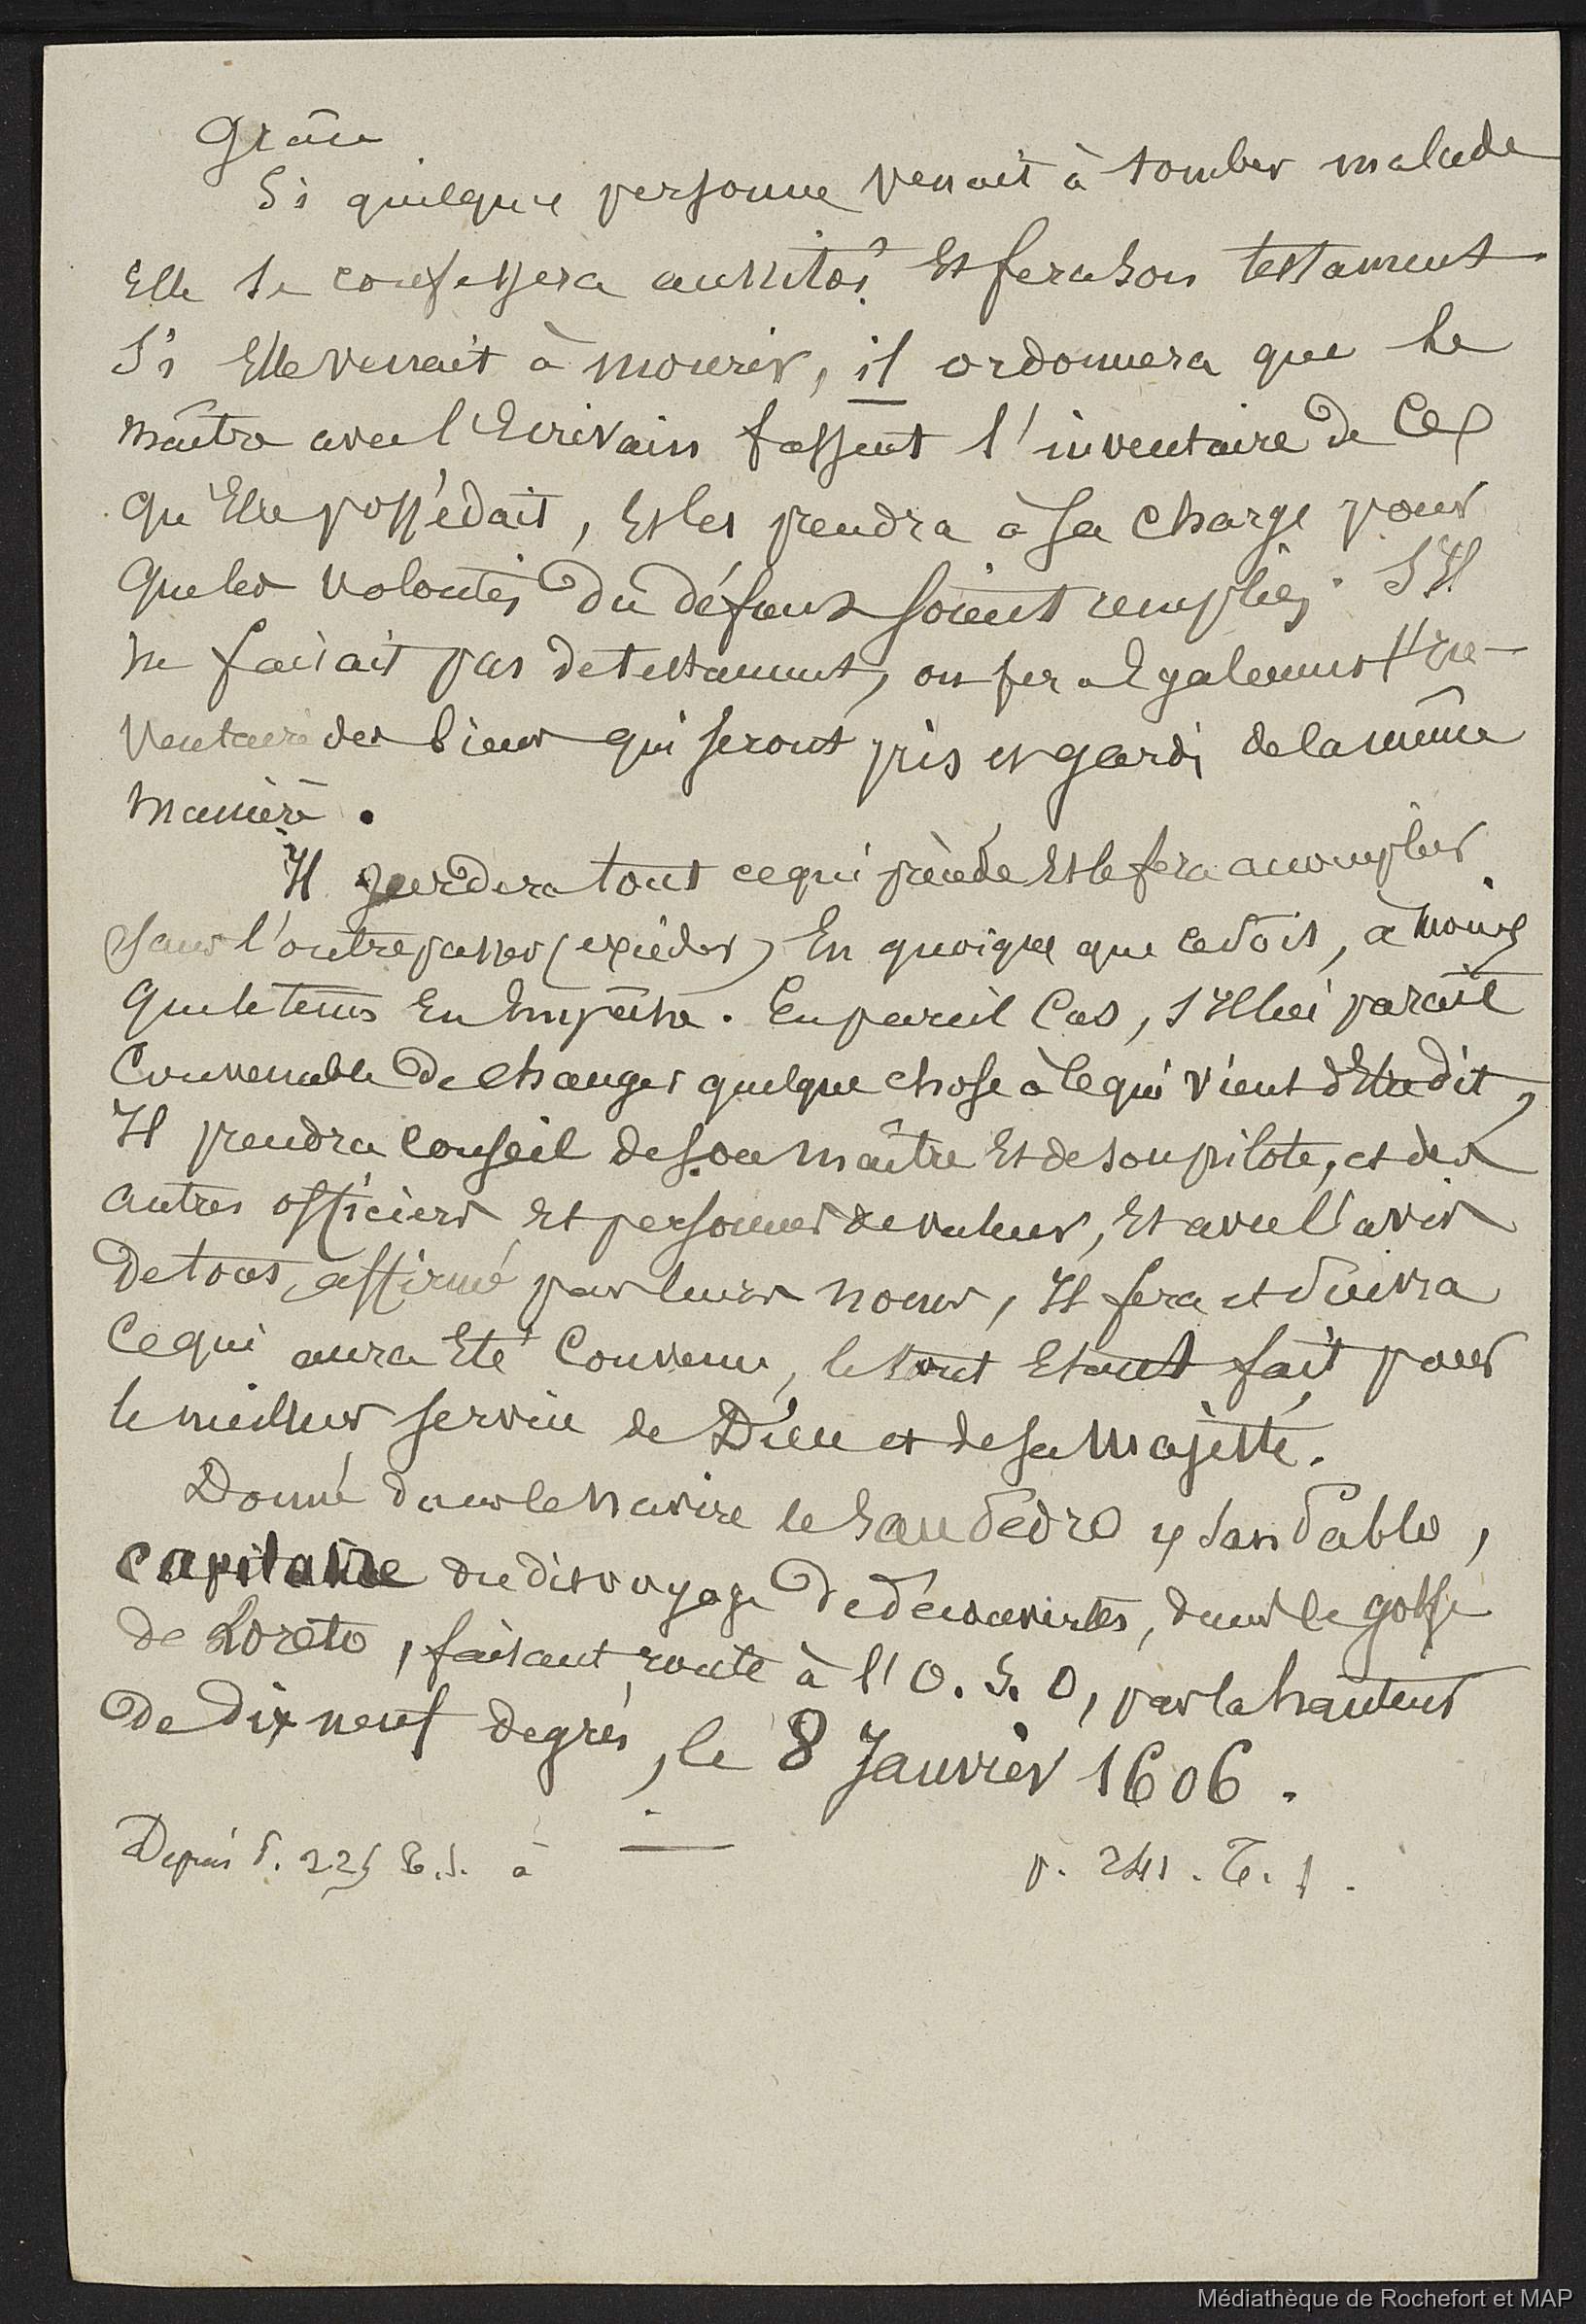 Grâce
Si quelque personne venait à tomber malade
Elle se confessera aussitôt Et fera son testament
Si Elle venait à mourir, il ordonnera que le
maître avec l'Ecrivain fassent l'inventaire de Ce
qu'Elle possédait, Et les prendra à sa charge pour
que les volontés du défunt soient remplies. S'Il
ne faisait pas de testament, on fera Egalement l'in-
ventaire des biens qui seront pris et gardé de la même
manière.
Il gardera tout ce qui précède Et le fera accomplir
sans l'outrepasser (excéder) En quoique que ce soit, à moins
que le tems En Empêche. En pareil Cas, s'Il lui paraît
Convenable De changer quelque chose à Ce qui vient d'Etre dit,
Il prendra Conseil de son maître Et de son pilote, et des
autres officiers Et personnes de valeur, Et avec l'avis
De tous, affirmé par leurs noms, Il fera et suivra
Ce qui aura Eté Convenu, le tout Etant fait pour
le meilleur service de Dieu et de sa Majesté.
Donné dans le navire le San Pedro y San Pablo,
capitaine du dit voyage De découvertes, dans le golfe
de Loreto, faisant route à l'O.S.O, par la hauteur
De Dix neuf degrés, le 8 Janvier 1606.
Depuis P. 225 T.1. à p. 241. T. 1.